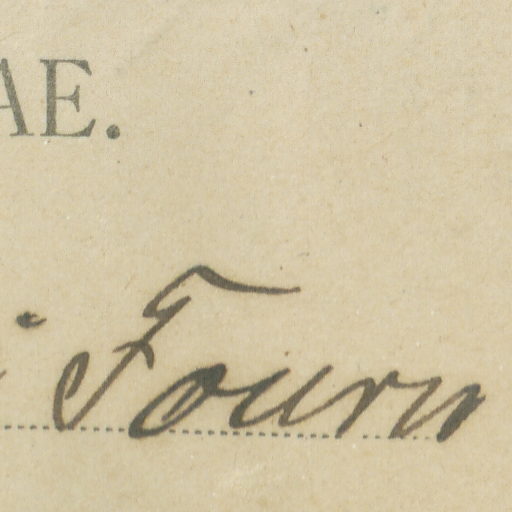 AE.
i Fourn